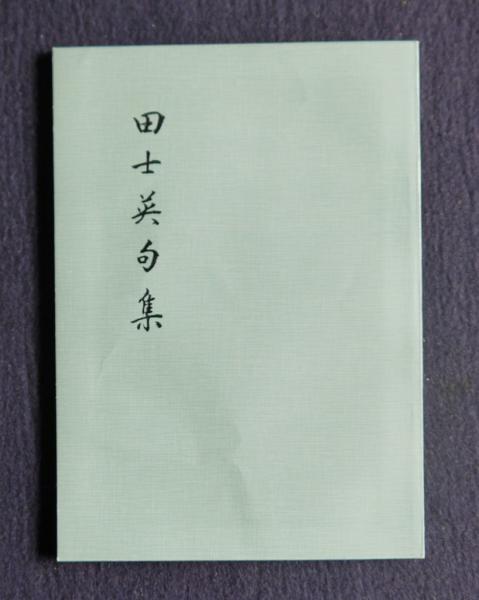 田士英句集